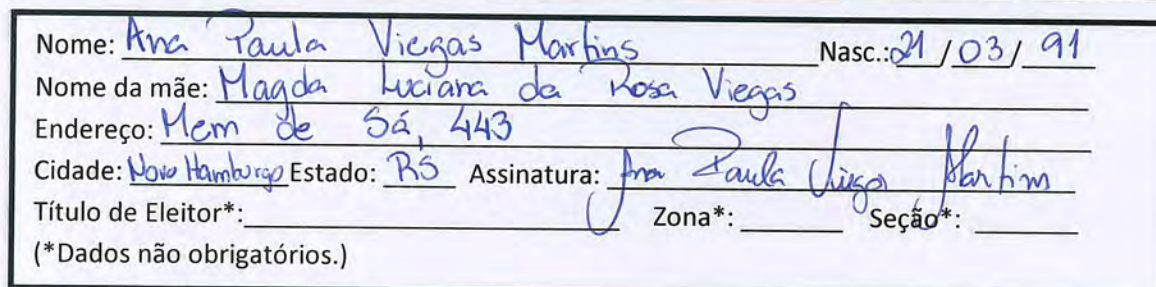 Nome: Ana Paula Viegas Martins Nasc.: 21 / 03 / 91
Nome da mãe: Magda Luciana da Rosa Viegas
Endereço: Mem de Sá, 443
Cidade: Novo Hamburgo Estado: RS Assinatura: Ana Paula Viegas Martins
Título de Eleitor*: Zona*: Seção*:
(*Dados não obrigatórios.)